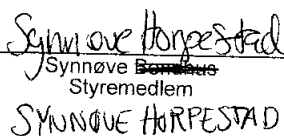 Synnøve Horpestad
Synnøve Bondhus
Styremedlem
SYNNØVE HORPESTAD